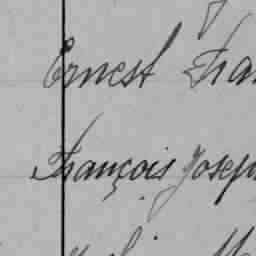 Ernest Fra
François Josep